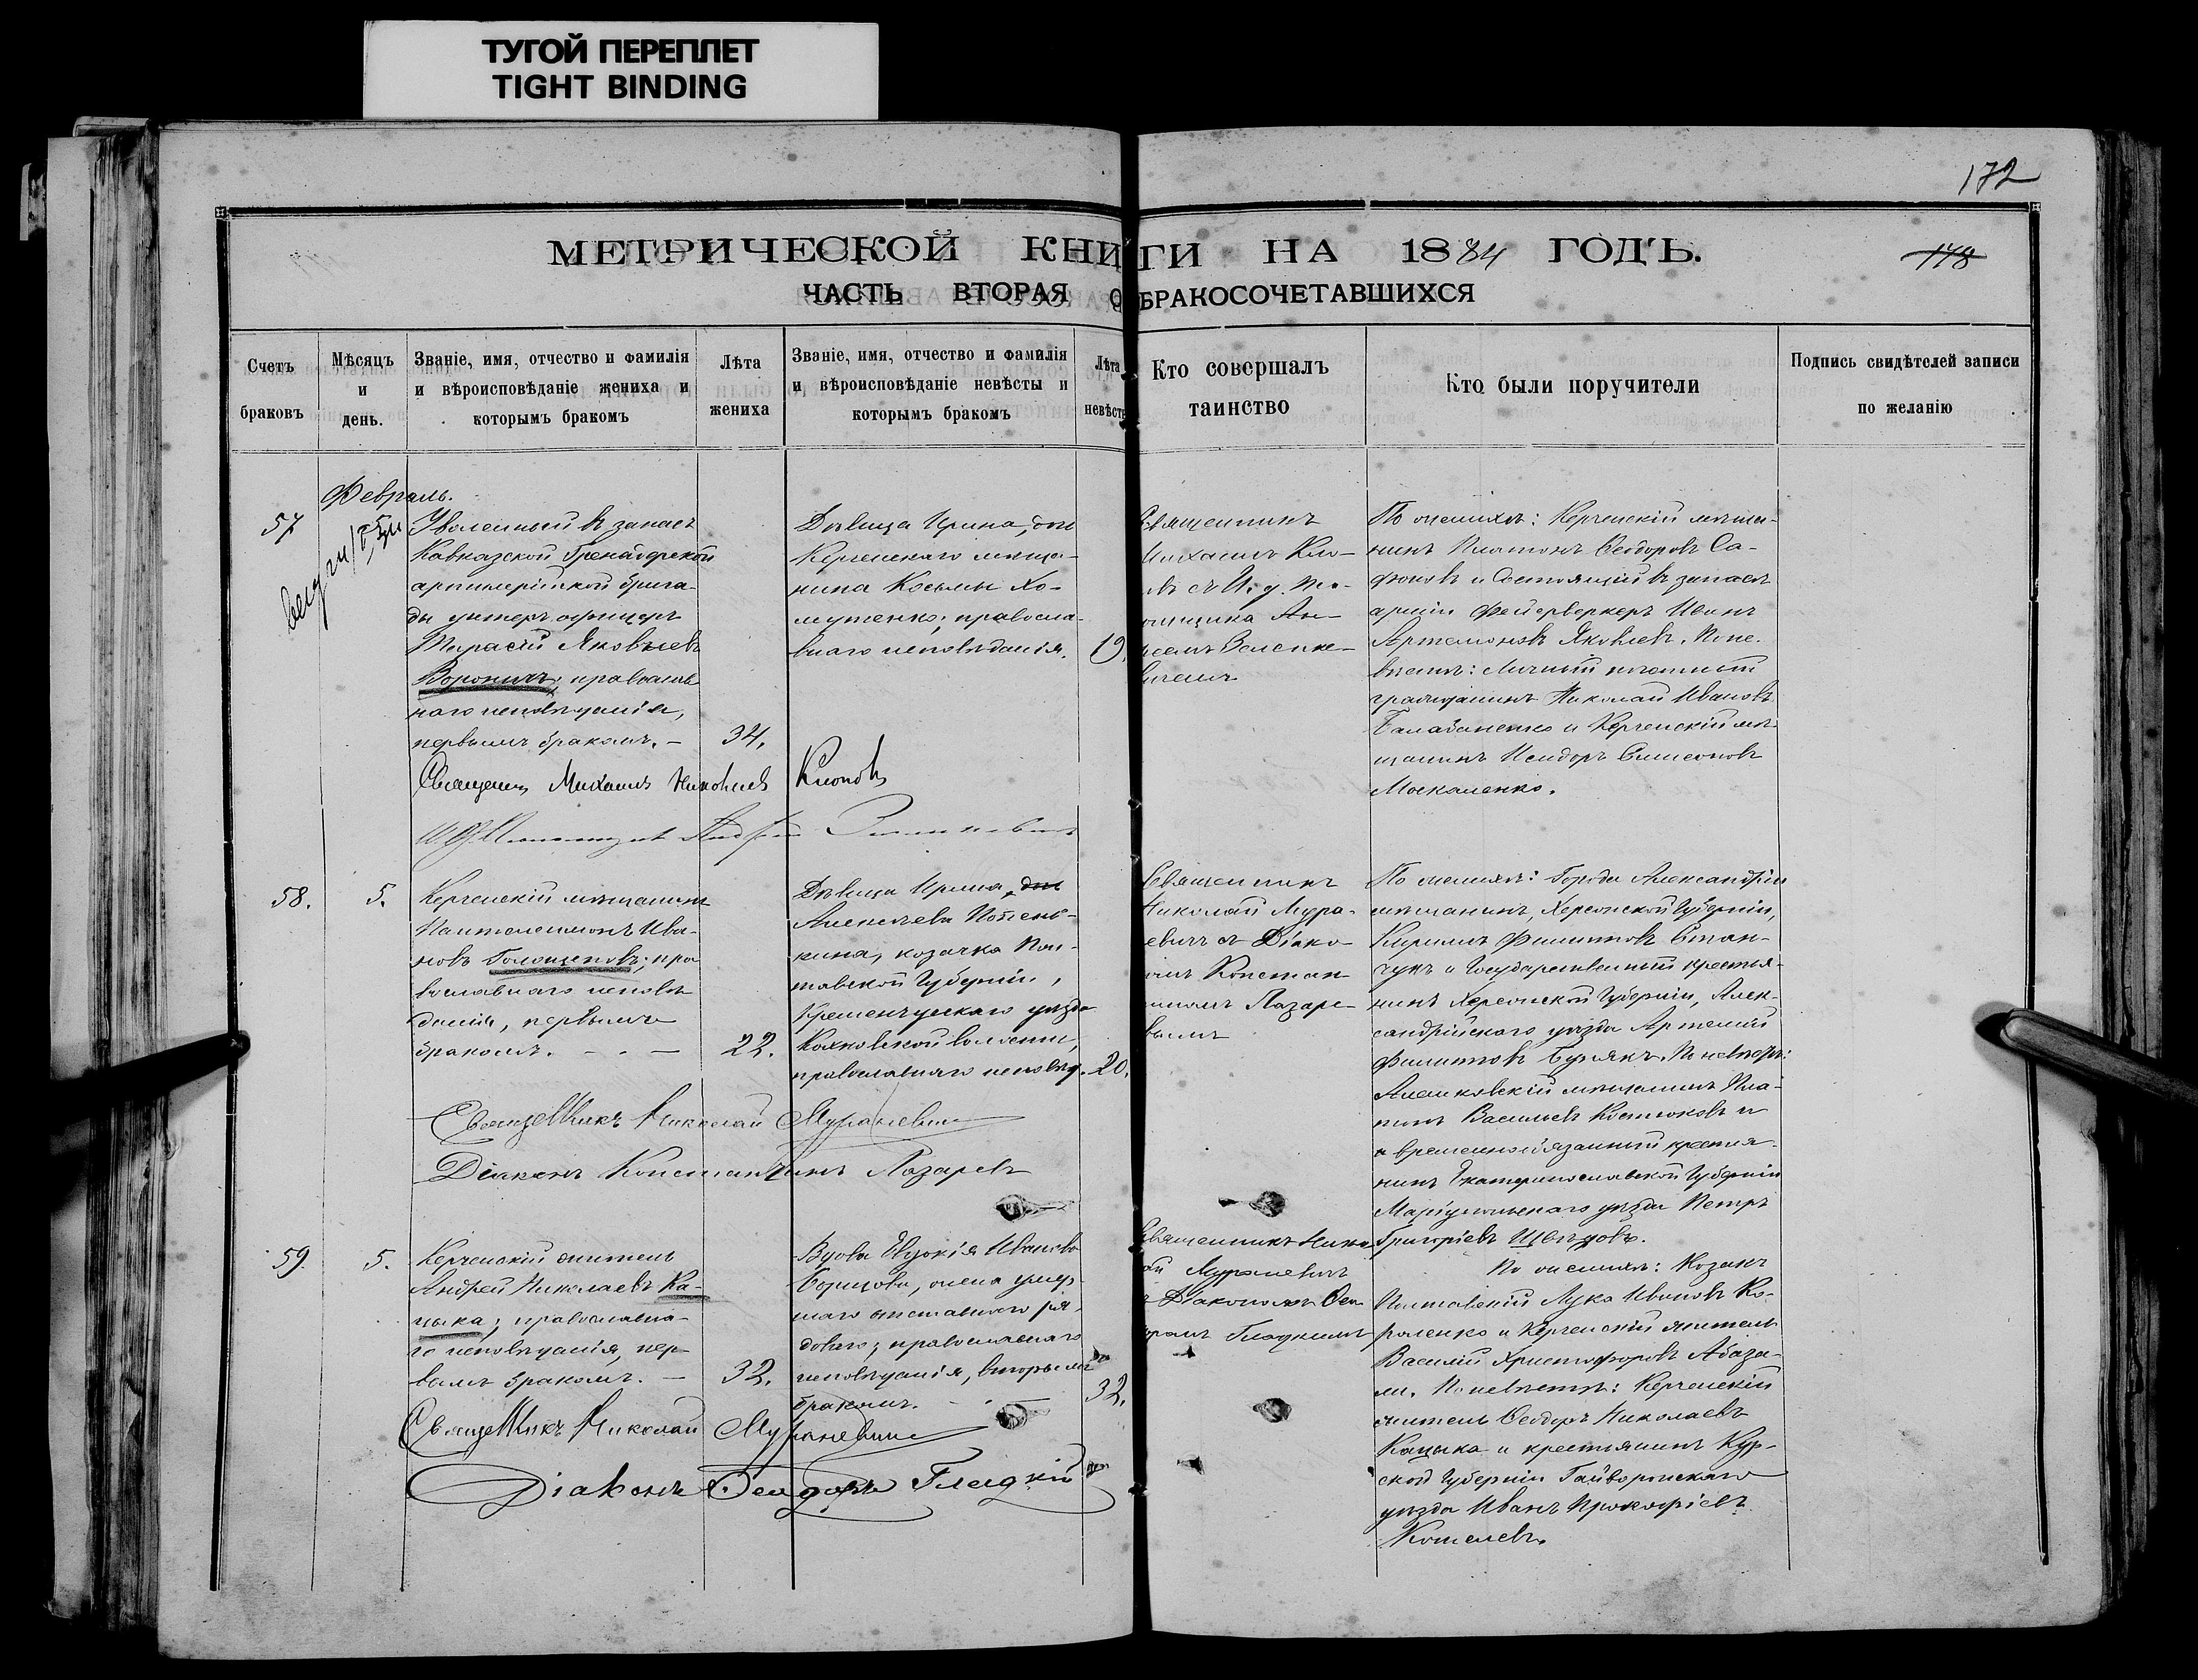 ТУГОЙ ПЕРЕПЛЕТ
TIGHT BINDING
172
МЕТРИЧЕСКОЙ КНИГИ НА 1884 ГОДЪ.
118
ЧАСТЬ ВТОРАЯ О БРАКОСОЧЕТАВШИХСЯ
Счетъ браковъ
Мѣсяцъ и день.
Званіе, имя, отчество и фамилія
и вѣроисповѣданіе жениха и
которымъ бракомъ
Лѣта жениха
Званіе, имя, отчество и фамилія
и вѣроисповѣданіе невѣсты и
которымъ бракомъ
Лѣта невѣсты
Кто совершалъ
таинство
Кто были поручители
Подпись свидѣтелей записи
по желанію
Февраль.
57
5
Уволенный въ запасъ
Кавказской Гренадерской
артиллерійской брига-
ды унтеръ офицеръ
Тарасій Яковлевъ
Воронинъ; православ
наго исповѣданія,
первымъ бракомъ. —
34.
Дѣвица Ирина, дочь
Керченскаго мѣща-
нина Космы Хо-
мутенко; правосла-
внаго исповѣданія.
19.
Священникъ
Михаилъ Кло-
въ съ И. д. Пса-
ломщика Ан-
реемъ Зеленке-
вичемъ
По женихѣ: Керченскій мѣща-
нинъ Платонъ Ѳеодоровъ Са-
фоновъ и Состоящій въ запасѣ
арміи фейерверкеръ Иванъ
Артамоновъ Яковлевъ. По не-
вѣстѣ: Личный почетный
гражданинъ Николай Ивановъ
Балабаненко и Керченскій мѣ-
щанинъ Исидоръ Симеоновъ
Москаленко.
Священникъ Михаилъ Николаевъ Клоповъ
И. Д. Псаломщика Андрей
58.
5.
Керченскій мѣщанинъ
Пантелеимонъ Ива-
новъ Голощаповъ; пра
вославнаго исповѣ
данія, первымъ
бракомъ. — . —
22.
Дѣвица Ирина, дочь
Алексѣева Потень-
кина, козачка Пол-
тавской Губерніи,
Кременчугскаго уѣзда
волости,
православнаго исповѣд.
20.
Священникъ
Николай Мура-
евичъ съ Діако-
номъ Констан-
тиномъ Лазаре-
вымъ
По женихѣ: Города Александріи
мѣщанинъ, Херсонской Губерніи,
Кириллъ Филипповъ Стан-
чукъ и Государственный крестья-
нинъ Херсонской Губерніи, Алек-
сандрійскаго уѣзда Артемій
Филипповъ Бурлякъ. По невѣстѣ:
Алешковскій мѣщанинъ Пла-
тонъ Васильевъ Костюковъ и
временнообязанный крестья-
нинъ Екатеринославской Губерніи
Маріупольскаго уѣзда Петръ
Григоріевъ
Священникъ Николай Мураневичъ
Діаконъ Константинъ Лазаревъ
59.
5.
Керченскій житель
Андрей Николаевъ Ка-
цыка; православна-
го исповѣданія, пер-
вымъ бракомъ. —
32.
Вдова Евдокія Иванова
Борисова, жена умер-
шаго отставного ря-
доваго; православнаго
исповѣданія, вторымъ
бракомъ. —
32.
Священникъ Нико
ай Мураневичъ
съ Діакономъ Ѳео
доромъ Гладкимъ
По женихѣ: Козакъ
Полтавскій Лука Ивановъ Ко-
роленко и Керченскій житель
Василій Христофоровъ Абаза-
ли. По невѣстѣ: Керченскій
житель Ѳеодоръ Николаевъ
Кацыка и крестьянинъ Кур-
ской Губерніи Гайворонскаго
уѣзда Иванъ Прокофіевъ
Кошелевъ.
Священникъ Николай Мураневичъ
Діаконъ Ѳеодоръ Гладкій